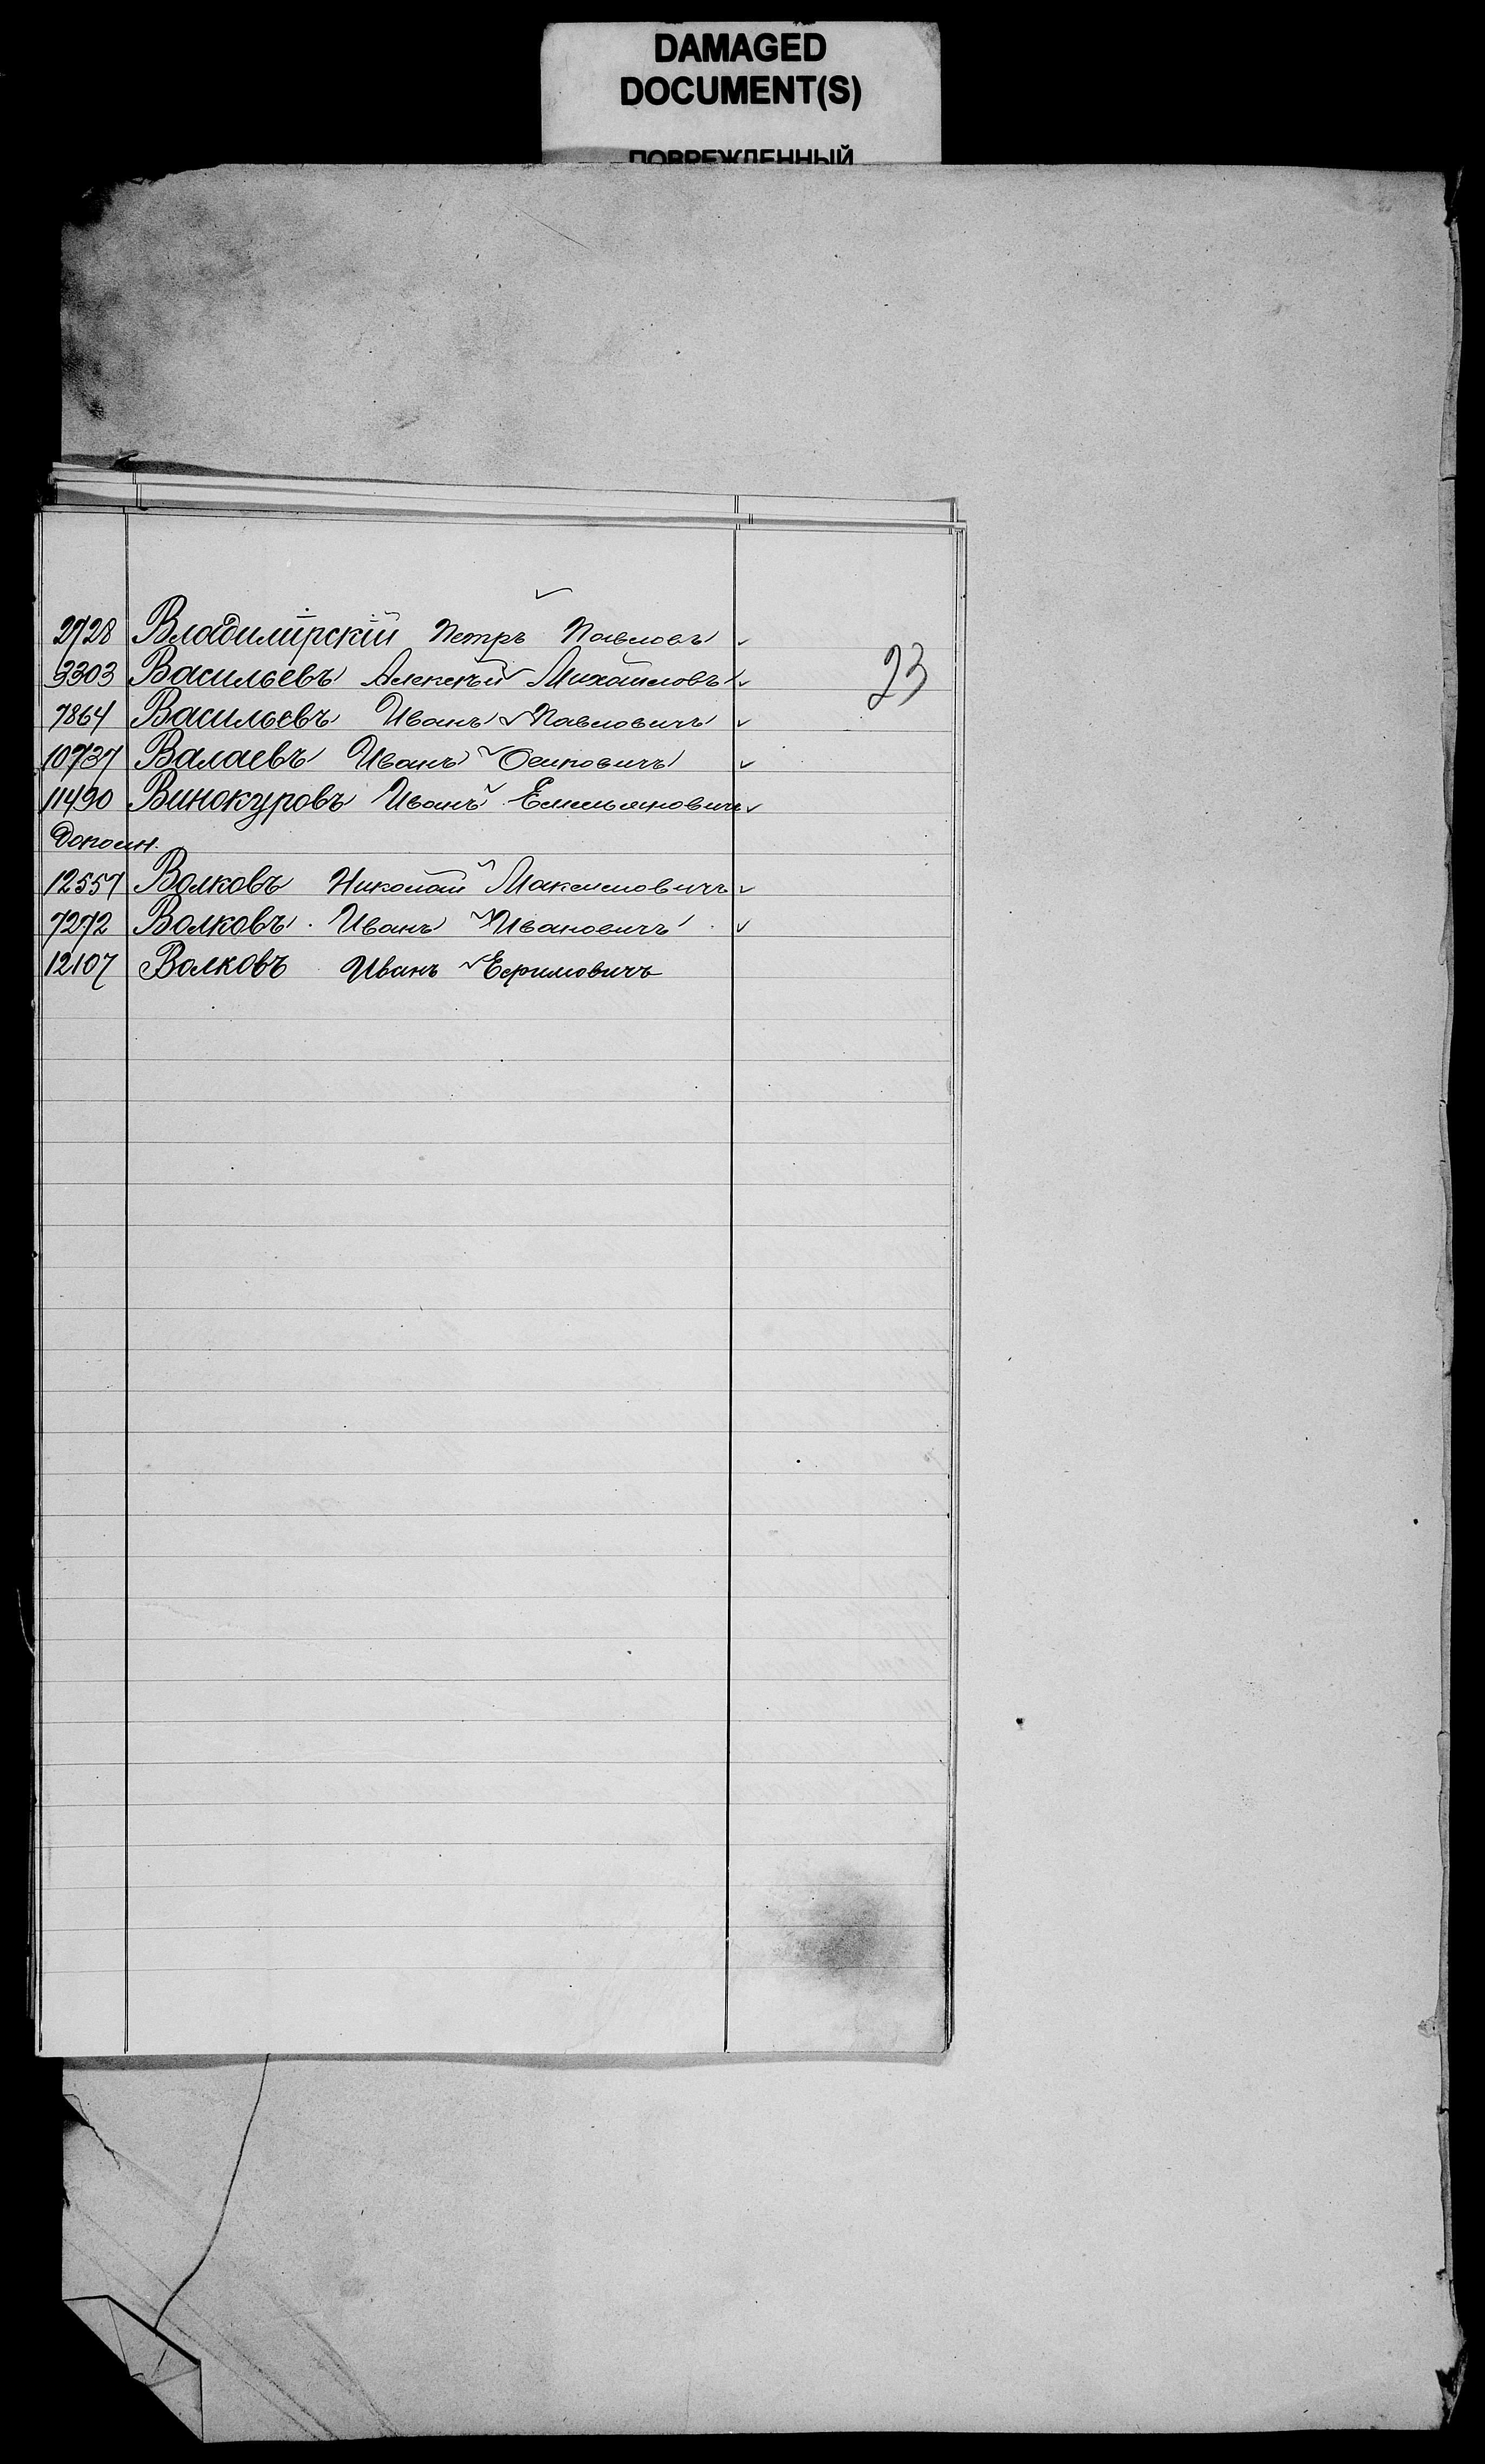 DAMAGED
DOCUMENT(S)
ПОВРЕЖДЕННЫЙ
2728 Владимірскій Петръ Павловъ
3303 Васильевъ Алексѣй Михайловъ
23
7864 Васильевъ Иванъ Павловичъ
10737 Валаевъ Иванъ Осиповичъ
11490 Винокуровъ Иванъ Емельяновичъ
Дополн.
12557 Волковъ Николай Максимовичъ
7272 Волковъ Иванъ Ивановичъ
12107 Волковъ Иванъ Ефимовичъ